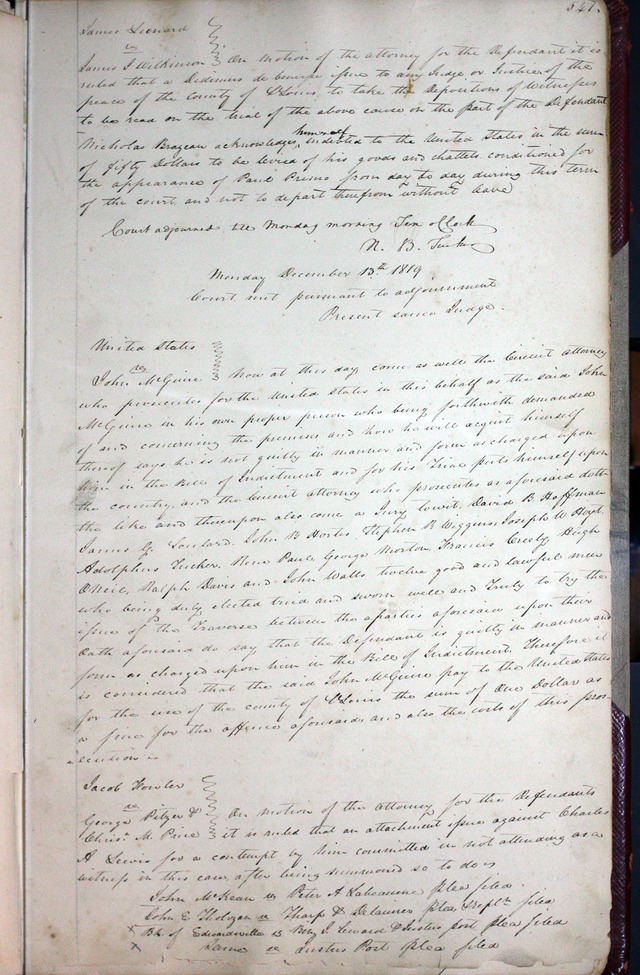 341.
James Leonard
vs
James J Wilkinson On motion of the attorney for the Defendant it is
ruled that a Dedimus de bene esse issue to any Judge or Justice of the
peace of the County of St Louis to take the Depositions of Witnesses
to be read on the trial of the above cause on the part of the Defendant
Nicholas Brazeau acknowledges himself indebted to the United States in the sum
of fifty Dollars to be levied of his goods and chattels conditioned for
the appearance of Paul Primo from day to day during this term
of the court and not to depart therefrom without leave
Court adjourned till Monday morning Ten oClock
N. B. Tucker
Monday December 13th 1819
Court met pursuant to adjournment
Present same Judge.
United States
vs
John McGuire Now at this day come as well the Circuit attorney
who prosecutes for the United States in this behalf as the said John
McGuire in his own proper person who being forthwith demanded
of and concerning the premises and how he will acquit himself
thereof says he is not guilty in manner and form as charged upon
him in the Bill of Indictment and for his Trial puts himself upon
the country, and the Circuit attorney who prosecutes as aforesaid doth
the like and thereupon also come a Jury towit. David B Hoffman
James G. Soulard. John B Hortis. Stephen R Wiggins, Joseph W Hoyt
Adolphus Tucker, Rene Paul, George Morton, Francis Creely Hugh
ONeil, Ralph Davis and John Walls twelve good and lawful men
who being duly elected tried and sworn well and Truly to try the
issue of the Traverse between the parties aforesaid upon their
Oath aforesaid do say that the Defendant is guilty in manner and
form as charged upon him in the Bill of Indictment. Therefore it
is considered that the said John McGuire pay to the United States
for the use of the county of St Louis the sum of One Dollar as
a fine for the offence aforesaid and also the costs of this pros-
ecution
Jacob Fowler
vs
George Pitzer &
Christ. M. Price On motion of the attorney for the Defendants
it is ruled that an attachment issue against Charles
A Lewis for a contempt by him committed in not attending as a
witness in this case after being summoned so to do
John McKean vs Peter A Labeaume plea filed.
John E Tholozan vs Tharp & Delaunay plea & Replcn filed
Bk of Edwardsville vs Benj. J. Seward & Justus Post plea filed
Same vs Justus Post plea filed